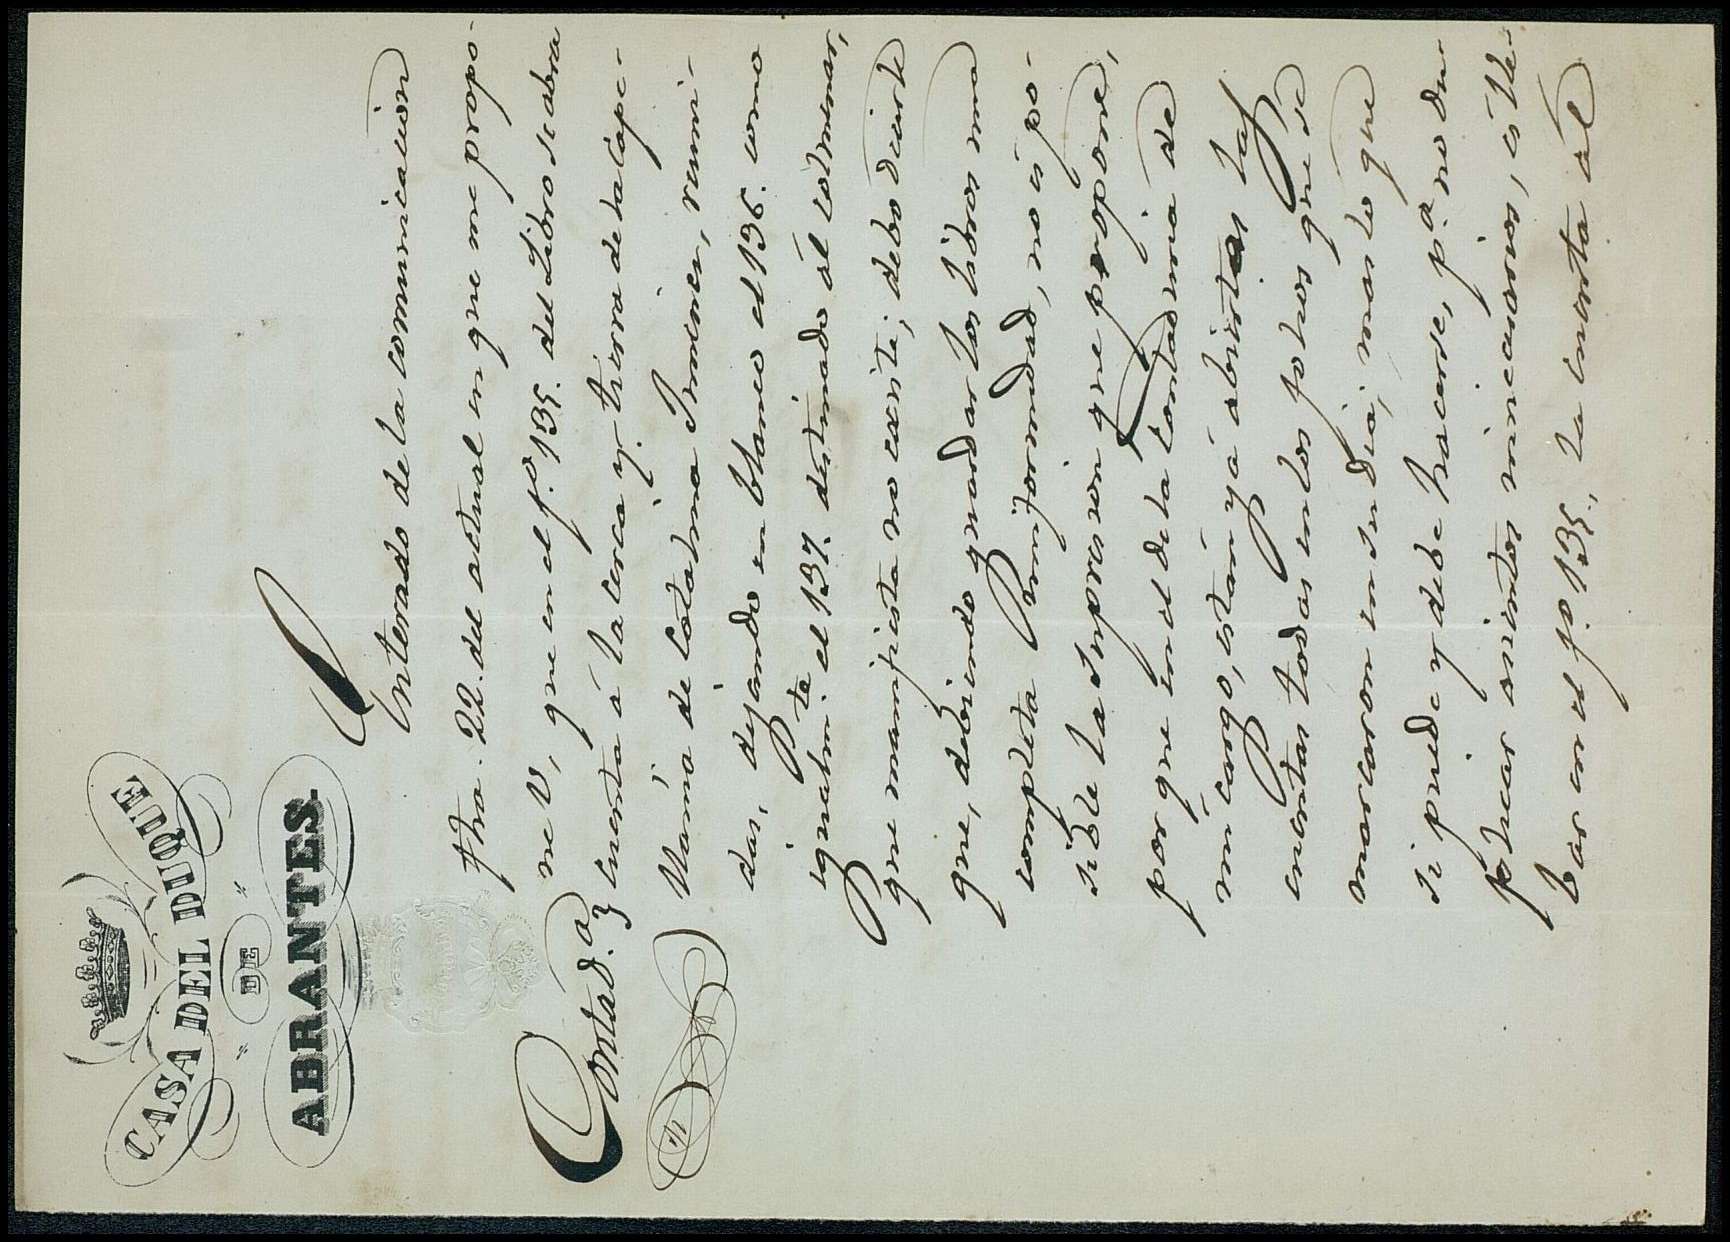 CASA DEL DUQUE
DE
ABRANTES.
Contad.ª
Enterado de la comunicacion
fha. 22. del actual en que me propo-
ne V, que en el f.º 135. del Libro se abra
cuenta á la cerca y tierra de la Cape-
llanía de Catalina Jimenez, reuni-
das, dejando en blanco el 136. como
igualm.te el 137. destinado al colmenar,
que manifiesta no existe; debo decirle
que, debiendo guardar los libros una
completa uniformidad, no es po-
sible la supresion que propone,
por que en el de la Contaduria de
mi cargo, estan yá abiertas las
cuentas todas en los folios que se
marcaron en su dia; mas lo que
si puede y debe hacerse, p.ª no du-
plicar asientos innecesarios, es lle-
bar en el f.º 135, la cuenta al